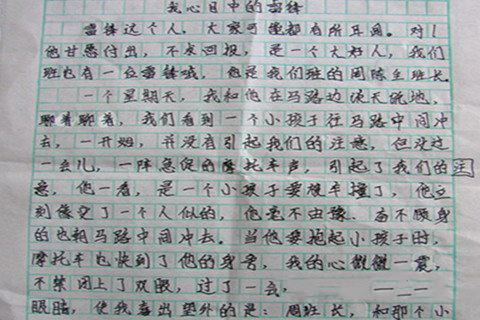 我心目中的雷锋
雷锋这个人，大家可能都有所耳闻。对！
他甘愿付出，不求回报，是一个大好人，我们
班也有一位雷锋哦，他是我们班的周班长。
一个星期天，我和他在马路边谈天说地，
聊着聊着，我们看到一个小孩子往马路中间冲
去，一开始，并没有引起我们的注意，但没过
一会儿，一阵急促的摩托车声，引起了我们的注
意，他一看，是一个小孩子要被车撞了，他立
刻像变了一个人似的，他毫不由豫、奋不顾身
的也朝马路中间冲去。当他要抱起小孩子时，
摩托车也快到了他的身旁，我的心微微一震，
不禁闭上了双眼，过了一会，
眼睛，使我喜出望外的是：周班长，和那个小